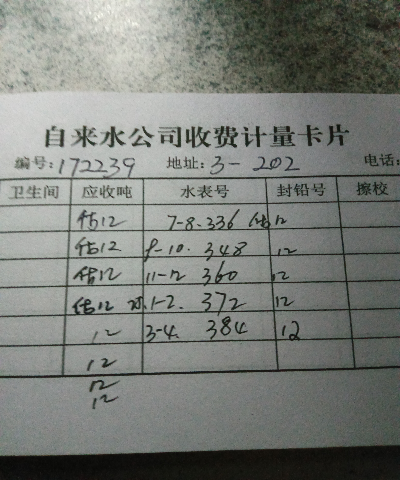 自来水公司收费计量卡片
编号:172239 地址:3-202 电话:
卫生间 应收吨 水表号 封铅号 擦校
估12 7-8. 336 估12
估12 9-10. 348 12
估12 11-12 360 12
估12 1-2. 372 12
12 3-4. 384 12
12
12
12